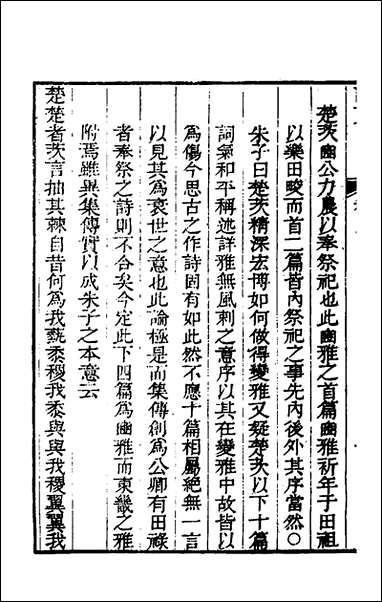 楚茨豳公力農以奉祭祀也此豳雅之首篇豳雅祈年于田祖
以樂田畯而首二篇皆內祭祀之事先內後外其序當然○
朱子曰楚茨精深宏博如何做得變雅又疑楚茨以下十篇
詞氣和平稱述詳雅無風刺之意序以其在變雅中故皆以
為傷今思古之作詩固有如此然不應十篇相屬絕無一言
以見其為衰世之意也此論極是而集傳創為公卿有田祿
者奉祭之詩則不合矣今定此下四篇為豳雅而東畿之雅
附焉雖異集傳實以成朱子之本意云
楚楚者茨言抽其棘自昔何為我蓺黍稷我黍與與我稷翼翼我